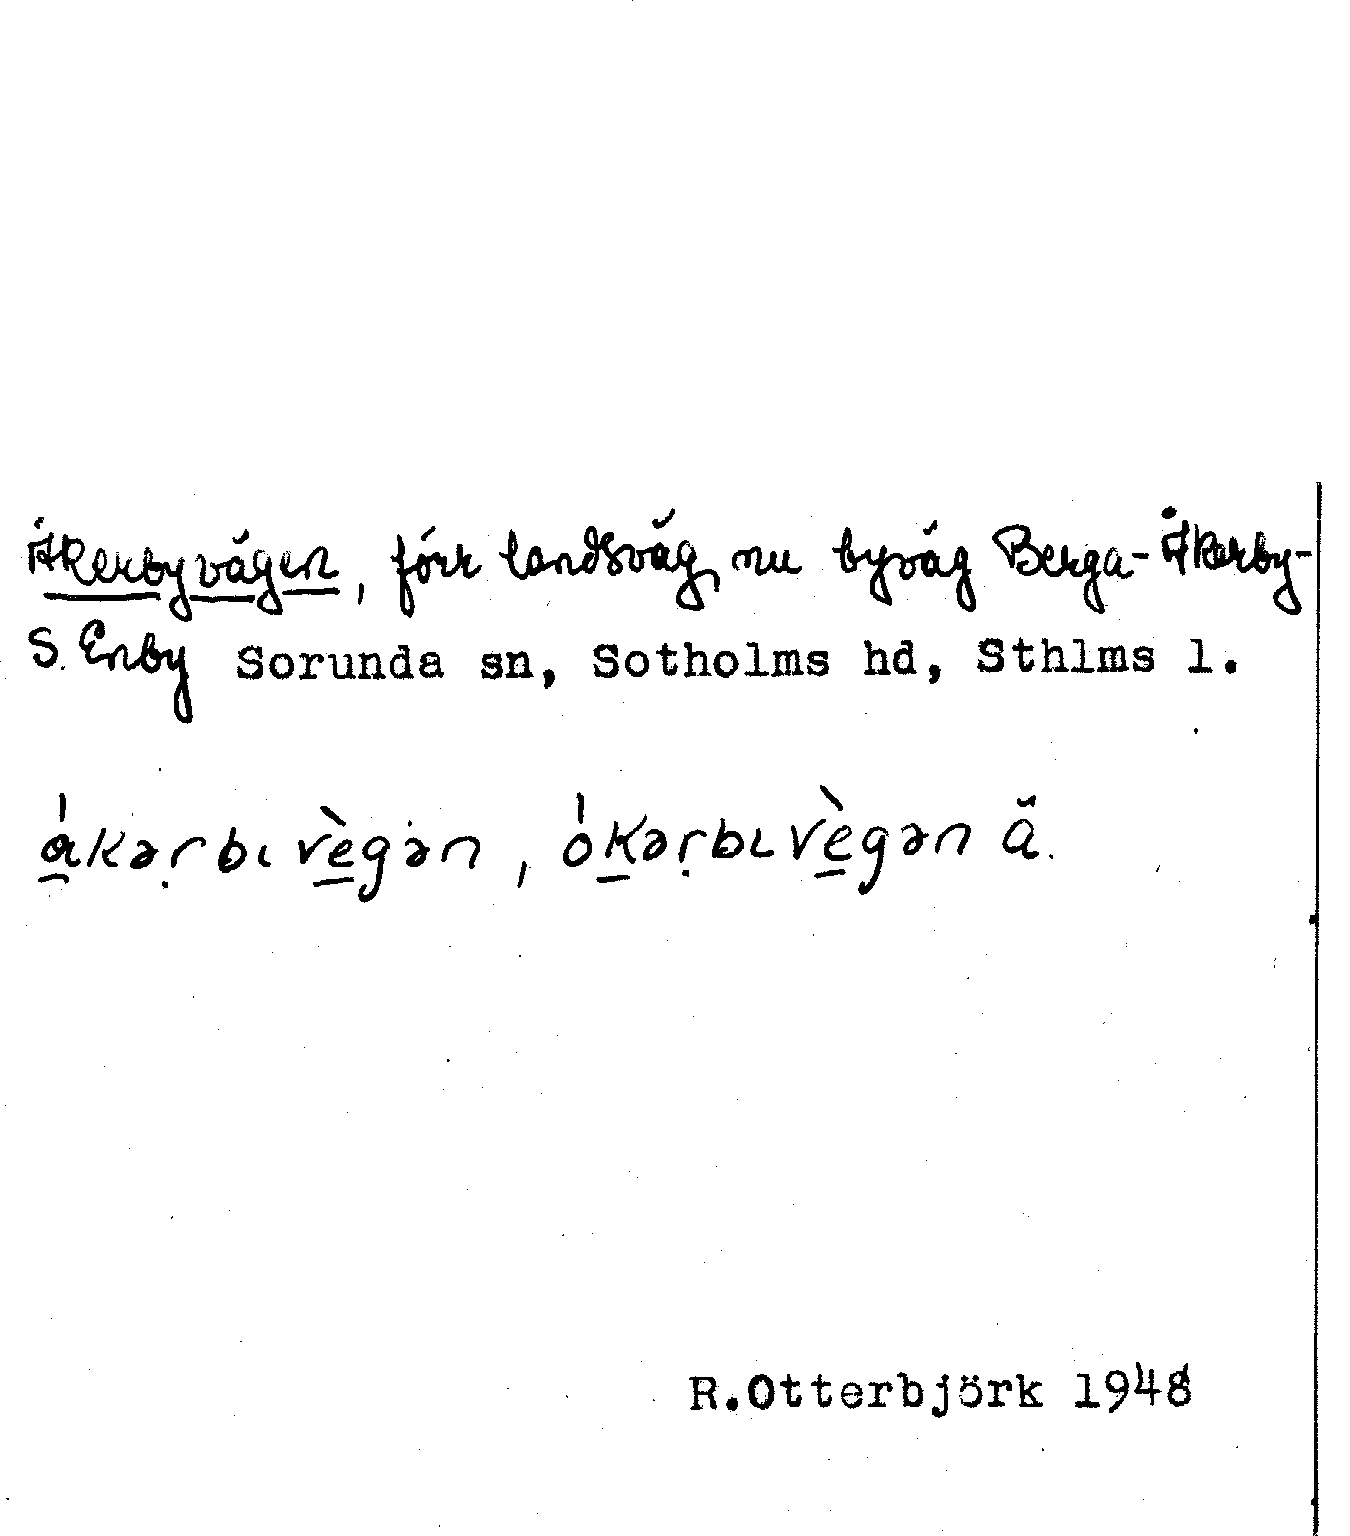 Åkerbyvägen, förr landsväg, nu byväg Berga-Åkerby-
S. Enby Sorunda sn, Sotholms hd, Sthlms l.
ákərbɩ vègən, ókərbɩ vègən ä.
R.Otterbjörk 1948